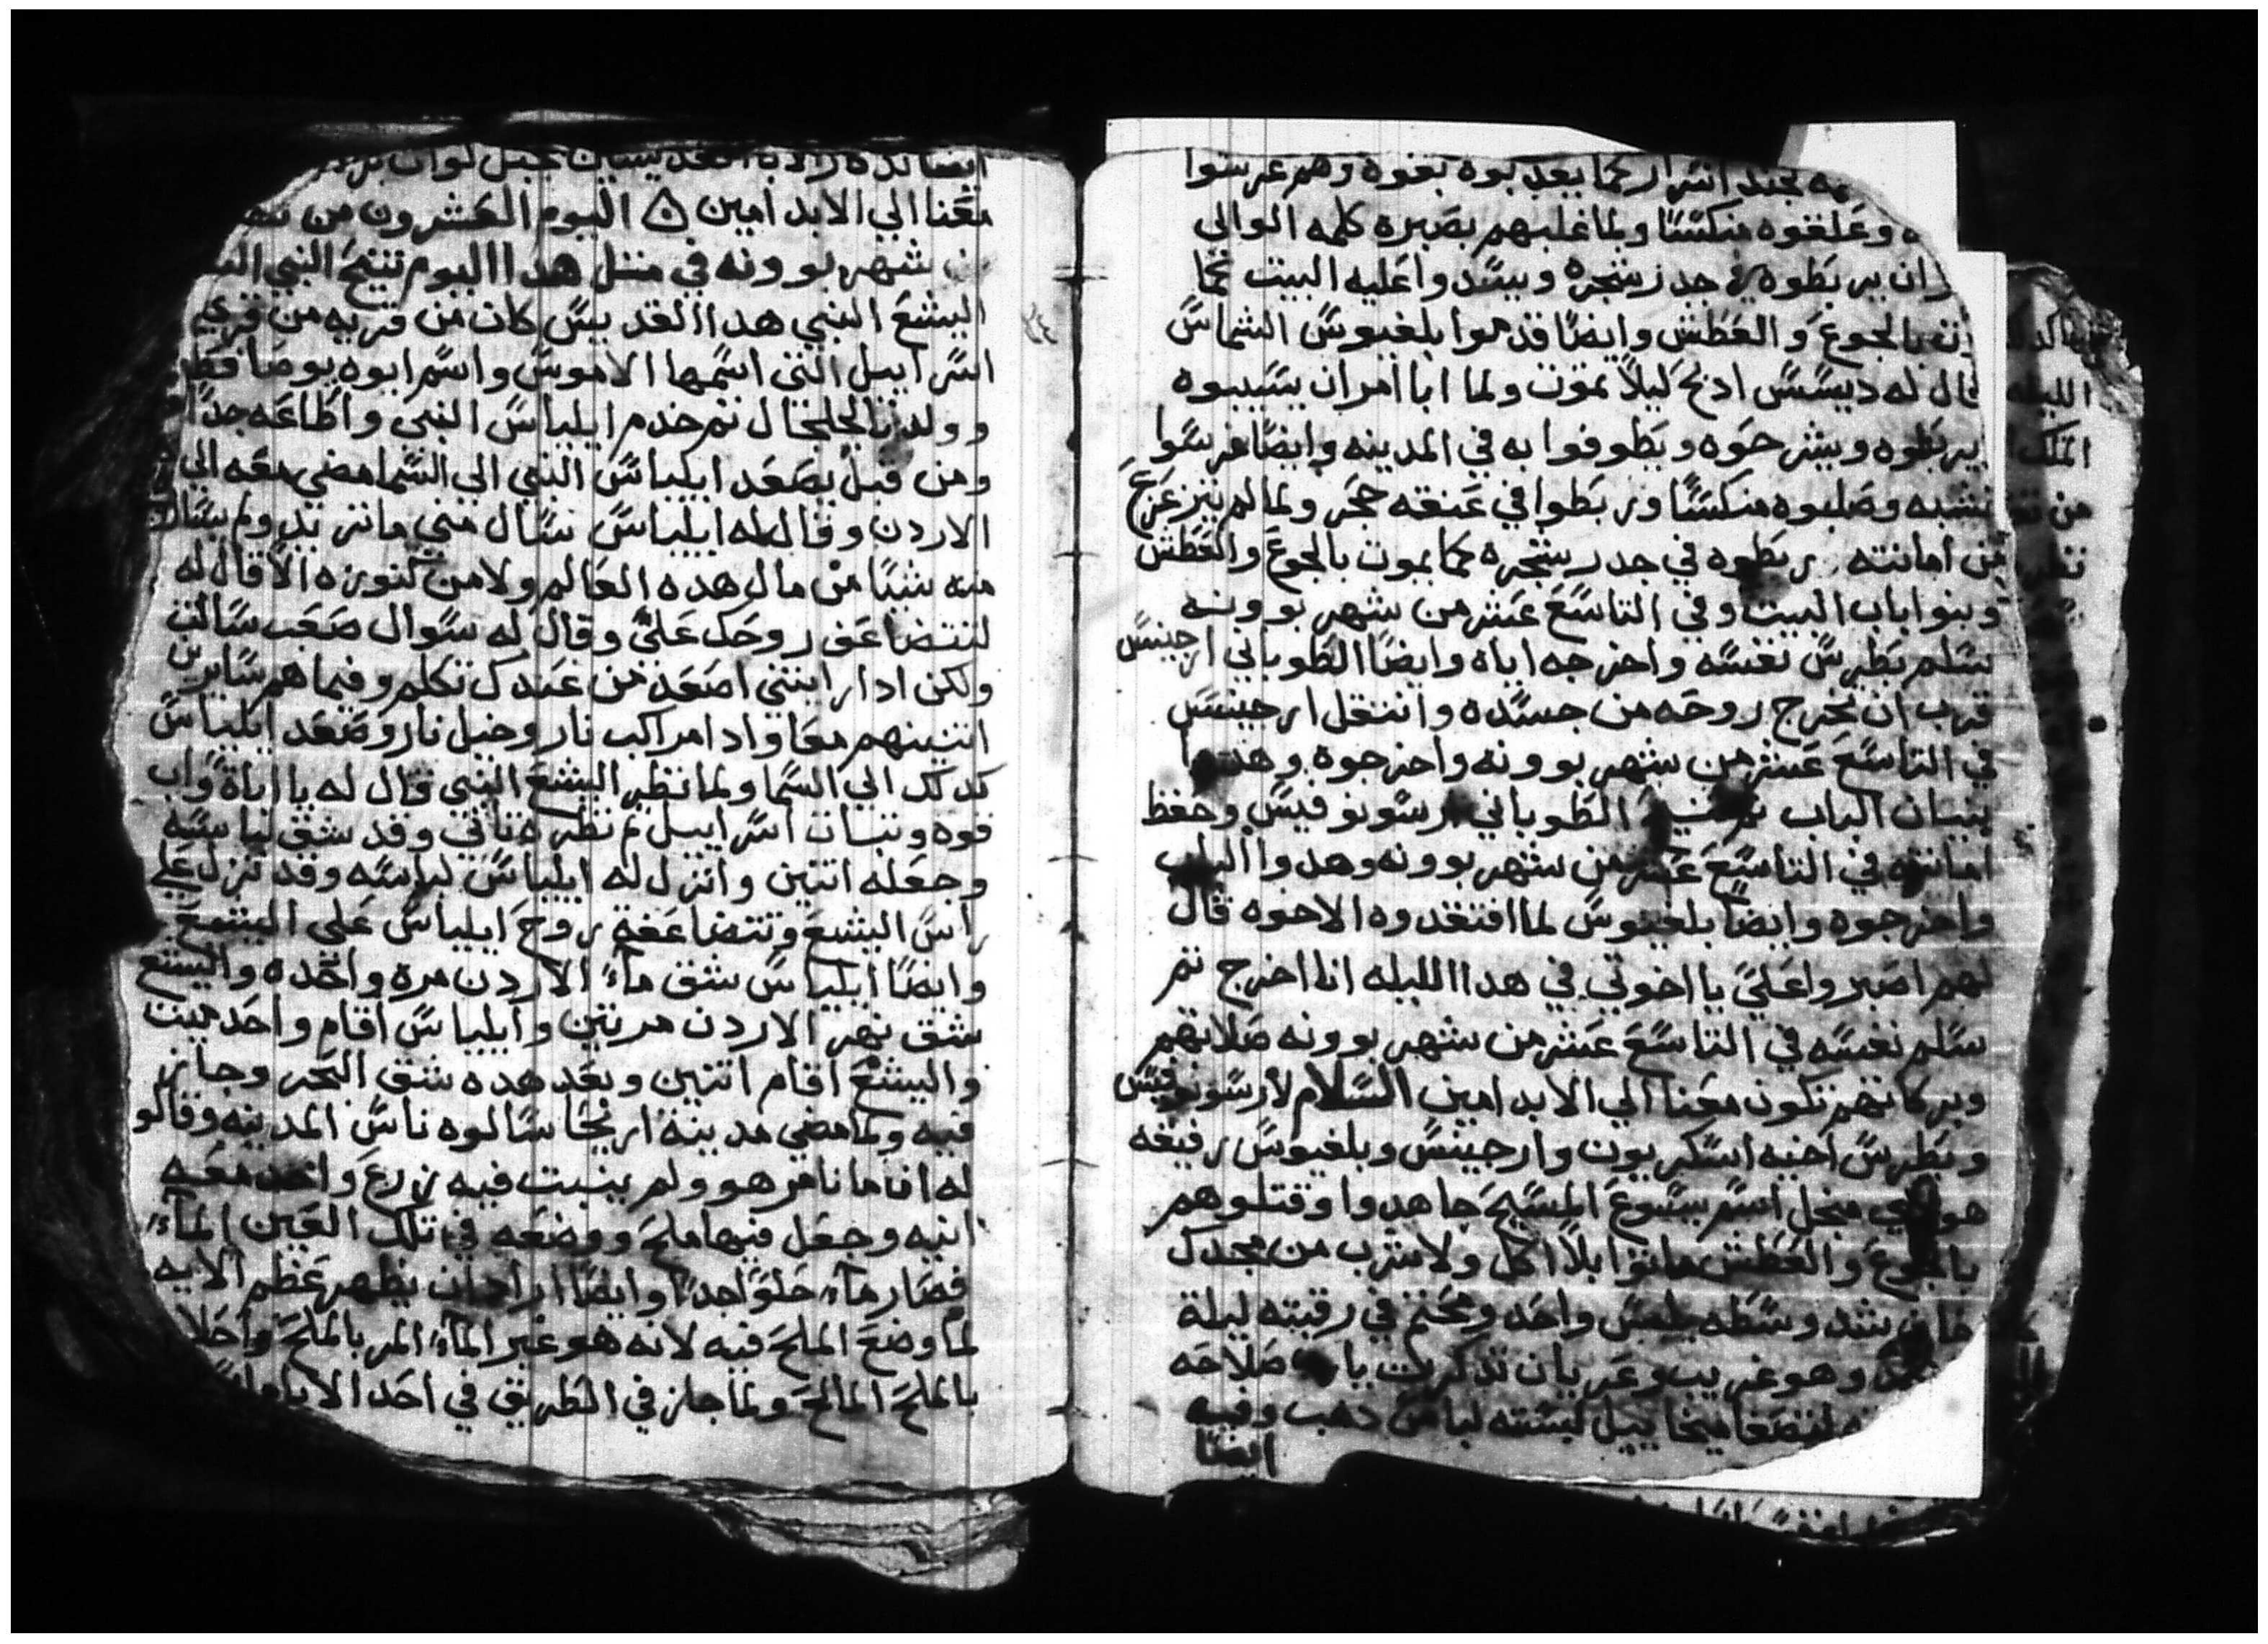 بجند اشرار كما يعدبوه بقوه وهم غرسوا
وعلقوه منكسًا ولما غلبهم بصبره كلمه الوالى
ان يربطوه في جدر شجره ويسدوا عليه البيت كما
بالجوع والعطش وايضًا قدموا بلفيوس الشماس
قال له ديسس ادبح كيلا تموت ولما ابا امر ان يسيبوه
يربطوه ويشرحوه ويطوفوا به في المدينه وايضا غرسوا
خشبه وصلبوه منكسًا وربطوا في عنقه حجر ولما لم يتزعزع
من امانته ربطوه في جدر شجره كما يموت بالجوع والعطش
وبنوا باب البيت وفي التاسع عشر من شهر بوونه
سلم بطرس نفسه واخرجه اياه وايضا الطوباني ارجينس
قرب ان تخرج روحه من جسده وانتقل ارجينسس
في التاسع عشر من شهر بوونه واخرجوه وهدموا
بنيان الباب الطوباني ارسونوفيس وحفظ
امانته في التاسع عشر من شهر بوونه وهدوا الباب
واخرجوه وايضًا بلفيوس لما افتقدوه الاخوه قال
لهم اصبروا علي يا اخوتي في هدا الليله انا اخرج تم
سلم نفسه في التاسع عشر من شهر بوونه صلاتهم
وبركاتهم تكون معنا الي الابد امين السلام لارسونوفيس
وبطرس اخيه اسكريون وارجينس وبلفيوس رفيقه
منجل اسم يسوع المسيح جاهدوا وقتلوهم
بالجوع والعطش ماتوا بلا اكل ولا شرب من مجدك
شد وسطه بلبس واحد ومختم في رقبته ليلة
وهو غريب وعريان تدكرت صلاحه
لتتصفا ميخاييل لبسته لباس دهب وفيه
ايضا
معنا الي الابد امين اليوم العشرون من
شهر بوونه في متل هدا اليوم تنيح النبي
اليشع النبي هدا القديس كان من قريه من قري
اسراييل التي اسمها الاموس واسم ابوه يوصافط
وولد تا لجلجال تم خدم ايلياس النبي واطاعه جدًا
ومن قبل يصعد ايلياس النبي الي السما مضي معه الي
الاردن وقال له ايلياس تسال مني ما تريد ولم يسال
منه شيًا من مال هده العالم ولا من كنوزه الا قال له
لتتضاعف روحك علي وقال له سوال صعب سالت
ولكن ادا رايتني اصعد من عندك تكلم وفيما هم سايرين
اتنينهم معا وادا مراكب نار وخيل نار وصعد ايلياس
كدلك الي السما ولما نظر اليشع النبي قال له يا اباة واب
قوه وتبات اسراييل لم نظره تاني وقد شق لباسه
وجعله اتنين وانزل له ايلياس لباسه وقد نزل علي
راس اليشع وتتضاعفة روح ايلياس علي اليشع
وايضا ايلياس شق ماء الاردن مرة واحده واليشع
شق نهر الاردن مرتين وايلياس اقام واحد ميت
واليشع اقام اتنين وبعد هده شق البحر وجاز
فيه ولما مضي مدينة اريحا سالوه ناس المدينه وقالو
له ان ما نا مر هو ولم ينبت فيه زرع واخد معه
انيه وجعل فيها ملح ووضعه في تلك العين الماء
فصار ماء حلوًا جدًا وايضا اراد ان يظهر عظم الايه
لما وضع الملح فيه لانه هو غير الماء المر بالملح واحلا
بالملح المالح ولما جاز في الطريق في احد الايام